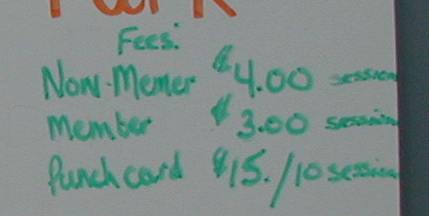 Fees:
Non-Memer $4.00 session
Member $3.00 session
Punch card $15./10 session